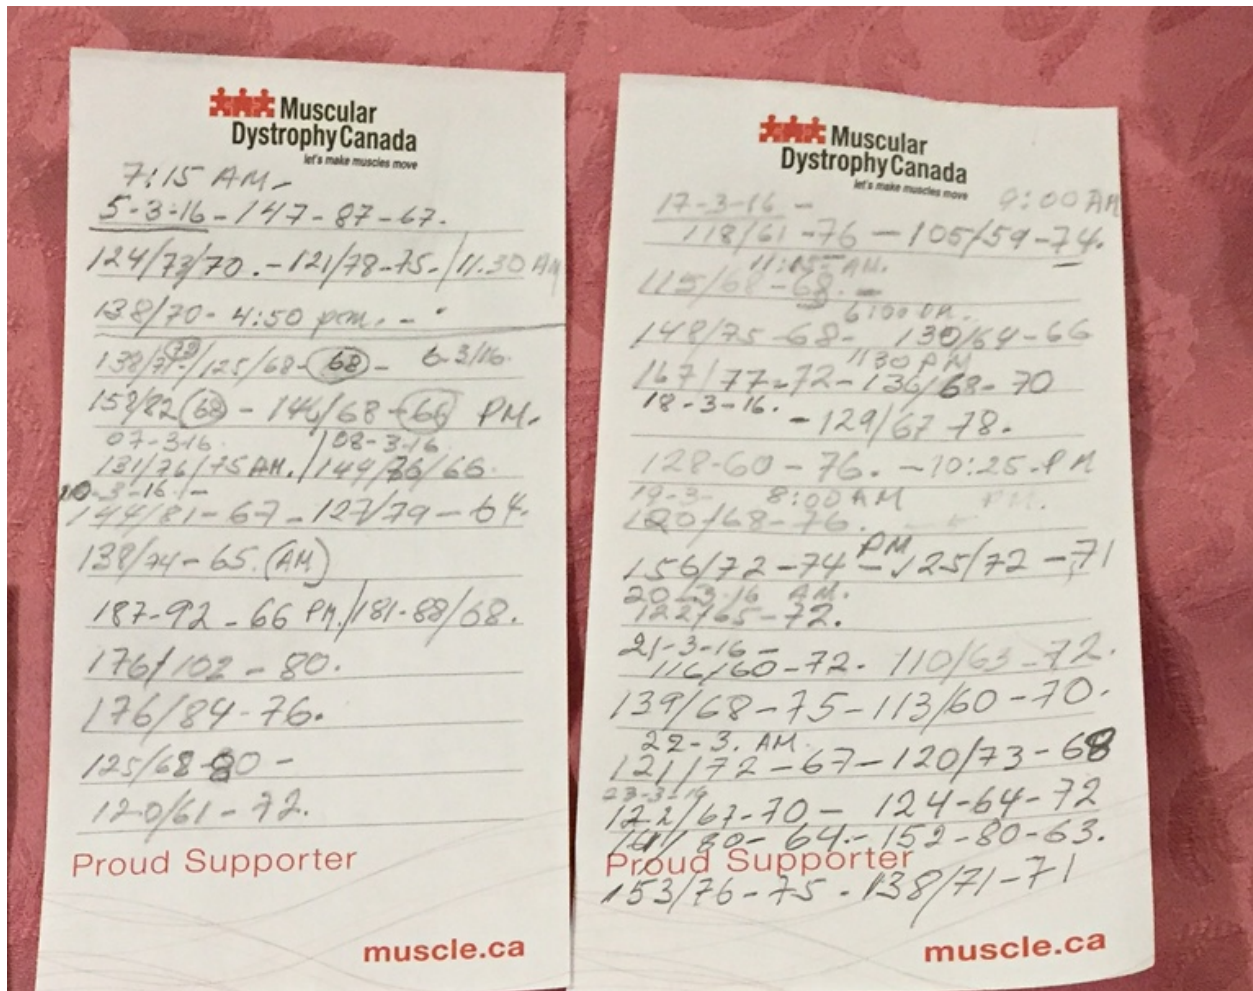 Muscular
Dystrophy Canada
let's make muscles move
7:15 AM-
5-3-16-147-87-67.
124/73/70.-121/78-75-/11.30 AM
138/70-4:50 pm.-
125/68-68- 6-3/16.
158/82 68-146/68-66 PM.
07-3-16. /08-3-16.
131/76/75 AM./149/76/66.
10-3-16.-
144/81-67-127/79-64.
138/74-65.(AM)
187-92-66 PM./181-88/68.
176/102-80.
176/84-76.
125/68-80-
120/61-72.
Proud Supporter
muscle.ca
Muscular
Dystrophy Canada
let's make muscles move
17-3-16- 9:00 AM
118/61-76-105/59-74.
11:15- AM.
115/68-68.-
6:00 PM.
148/75-68- 130/64-66
11 30 PM
167/77-72-136/68-70
18-3-16.
-129/67-78.
128-60-76.-10:25-PM
19-3- 8:00 AM PM.
120/68-76.
156/72-74 PM-125/72-71
20-3-16 AM.
122/65-72.
21-3-16-
116/60-72. 110/63-72.
139/68-75-113/60-70.
22-3. AM.
121/72-67-120/73-68
23-3-16
122/67-70- 124-64-72
80-64-152-80-63.
Proud Supporter
153/76-75-138/71-71
muscle.ca